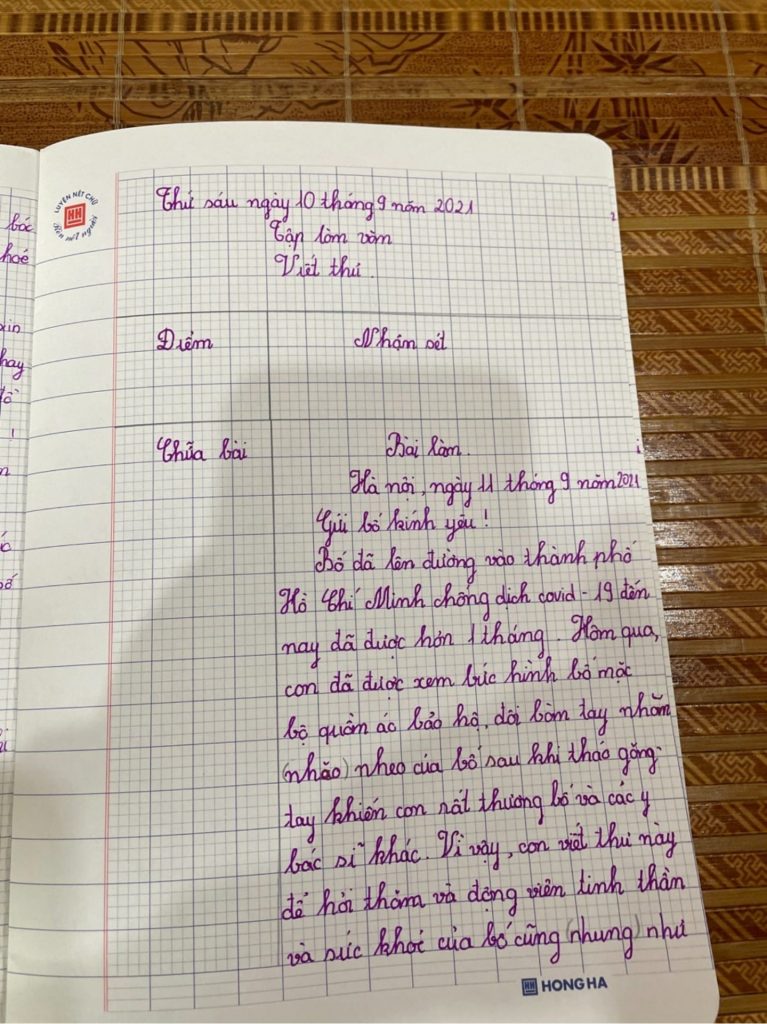 LUYỆN NÉT CHỮ
Rèn nết người
HH
Thứ sáu ngày 10 tháng 9 năm 2021
Tập làm văn
Viết thư.
Điểm
Nhận sét
Chữa bài
Bài làm.
Hà nội, ngày 11 tháng 9 năm 2021
Gửi bố kính yêu!
Bố đã lên đường vào thành phố
Hồ Chí Minh chống dịch covid-19 đến
nay đã được hơn 1 tháng. Hôm qua,
con đã được xem bức hình bố mặc
bộ quần áo bảo hộ, đôi bàn tay nhăn
(nhão) nheo của bố sau khi tháo găng
tay khiến con rất thương bố và các y
bác sĩ khác. Vì vậy, con viết thư này
để hỏi thăm và động viên tinh thần
và sức khoẻ của bố cũng (nhung) như
HONG HA
bác
hoẻ
xin
hay
!